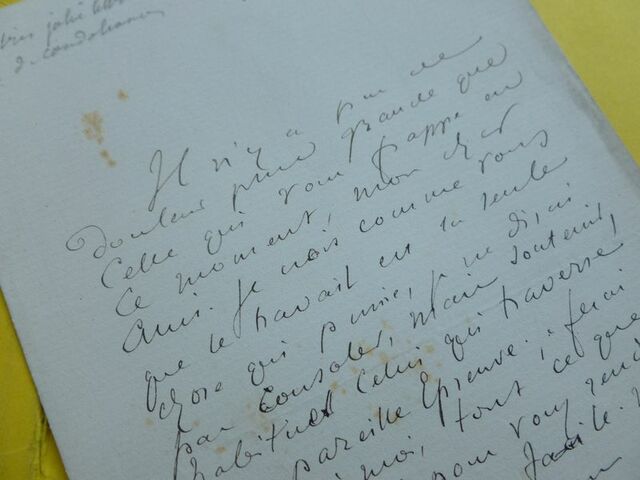 très jolie lettre
de condoléances
Il n'y a pas de
douleur plus grande que
celle qui vous frappe en
ce moment, mon cher
ami. Je crois comme vous
que le travail est la seule
chose qui puisse, je ne dirai
pas consoler, mais soutenir,
habituel celui qui traverse
pareille épreuve. je ferai
moi, tout ce que
pour vous rend
facile.